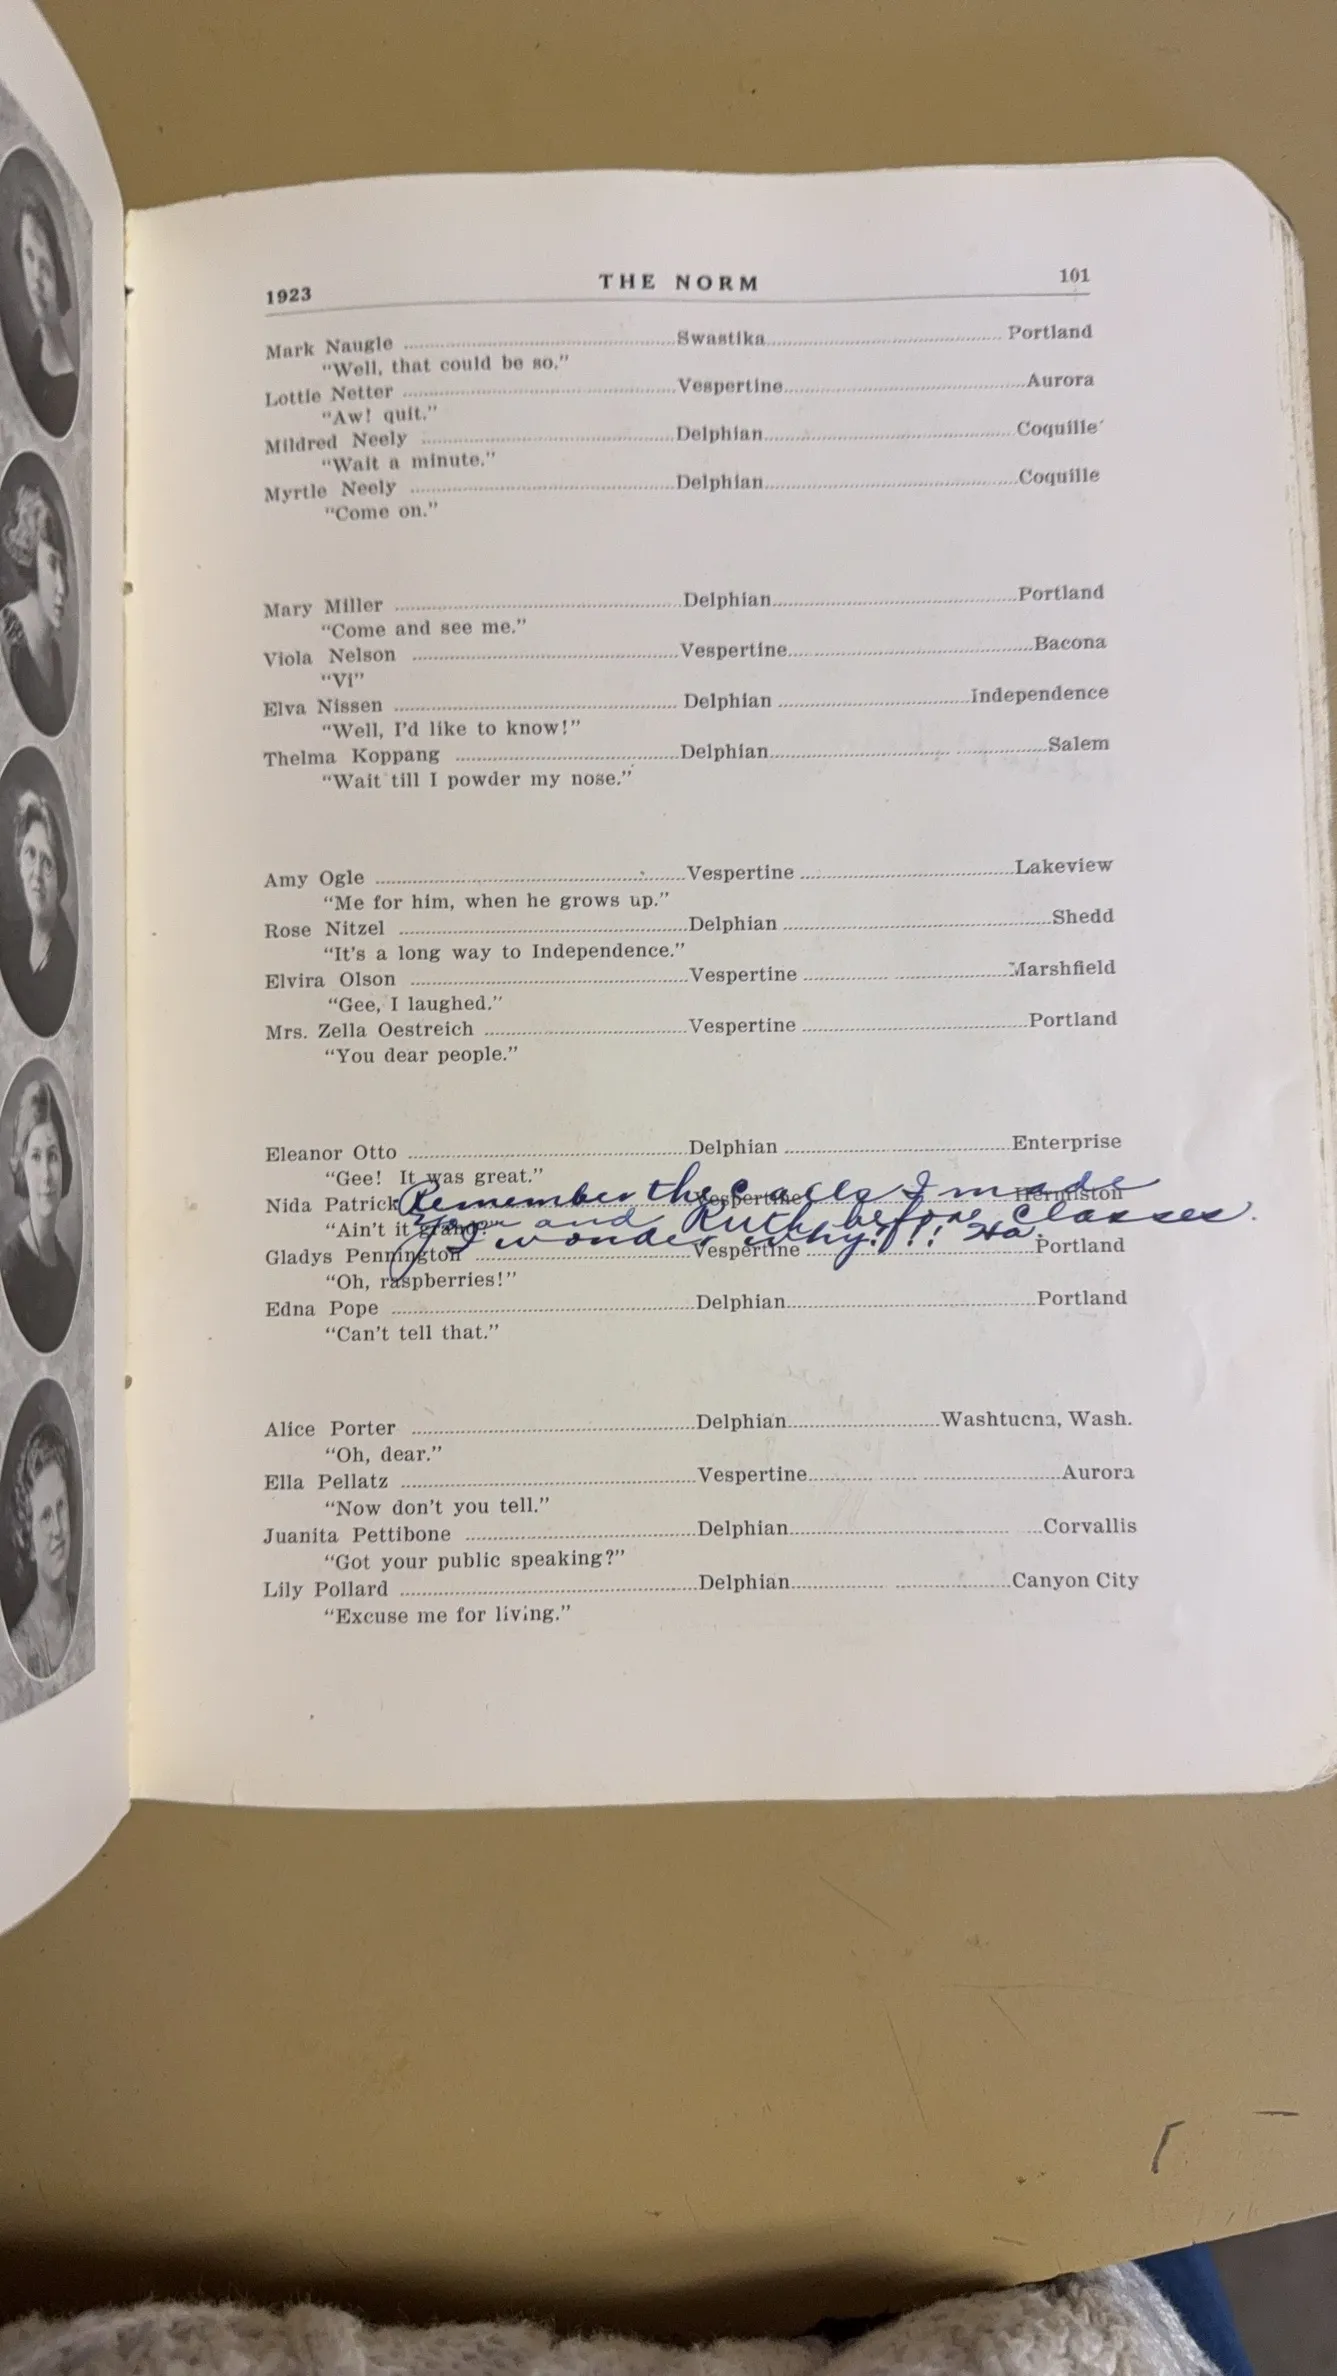 1923 THE NORM 101
Mark Naugle ........ Swastika ........ Portland
"Well, that could be so."
Lottie Netter ........ Vespertine ........ Aurora
"Aw! quit."
Mildred Neely ........ Delphian ........ Coquille
"Wait a minute."
Myrtle Neely ........ Delphian ........ Coquille
"Come on."
Mary Miller ........ Delphian ........ Portland
"Come and see me."
Viola Nelson ........ Vespertine ........ Bacona
"Vi"
Elva Nissen ........ Delphian ........ Independence
"Well, I'd like to know!"
Thelma Koppang ........ Delphian ........ Salem
"Wait till I powder my nose."
Amy Ogle ........ Vespertine ........ Lakeview
"Me for him, when he grows up."
Rose Nitzel ........ Delphian ........ Shedd
"It's a long way to Independence."
Elvira Olson ........ Vespertine ........ Marshfield
"Gee, I laughed."
Mrs. Zella Oestreich ........ Vespertine ........ Portland
"You dear people."
Eleanor Otto ........ Delphian ........ Enterprise
"Gee! It was great."
Remember the calls I made
Nida Patrick ........ Vespertine ........ Hermiston
you and Ruth before classes.
"Ain't it grand?"
I wonder why?!! Ha.
Gladys Pennington ........ Vespertine ........ Portland
"Oh, raspberries!"
Edna Pope ........ Delphian ........ Portland
"Can't tell that."
Alice Porter ........ Delphian ........ Washtucna, Wash.
"Oh, dear."
Ella Pellatz ........ Vespertine ........ Aurora
"Now don't you tell."
Juanita Pettibone ........ Delphian ........ Corvallis
"Got your public speaking?"
Lily Pollard ........ Delphian ........ Canyon City
"Excuse me for living."